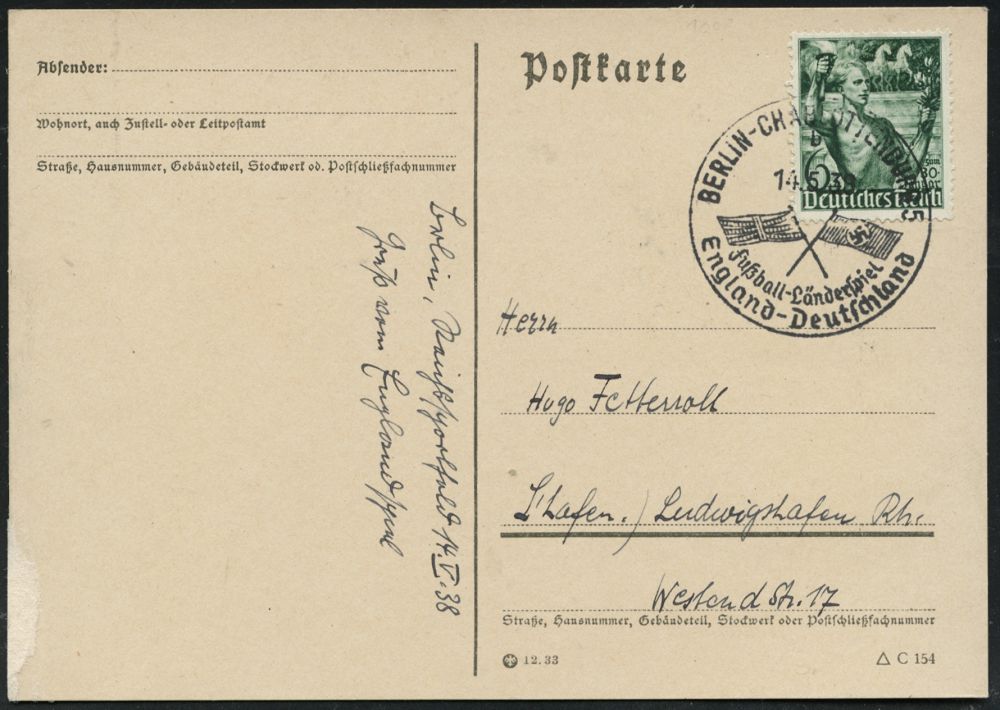 Absender:
Wohnort, auch Zustell- oder Leitpostamt
Straße, Hausnummer, Gebäudeteil, Stockwerk od. Postschließfachnummer
Berlin, Reichssportfeld 14.V.38
Gruß vom Englandspiel
Postkarte
6
30.
Deutsches Reich
BERLIN-CHARLOTTENBURG 5
b
14.5.38
Fußball-Länderspiel
England-Deutschland
Herrn
Hugo Fetterroll
L'hafen./Ludwigshafen Rh.
Westend Str. 17
Straße, Hausnummer, Gebäudeteil, Stockwerk oder Postschließfachnummer
12.33
C 154